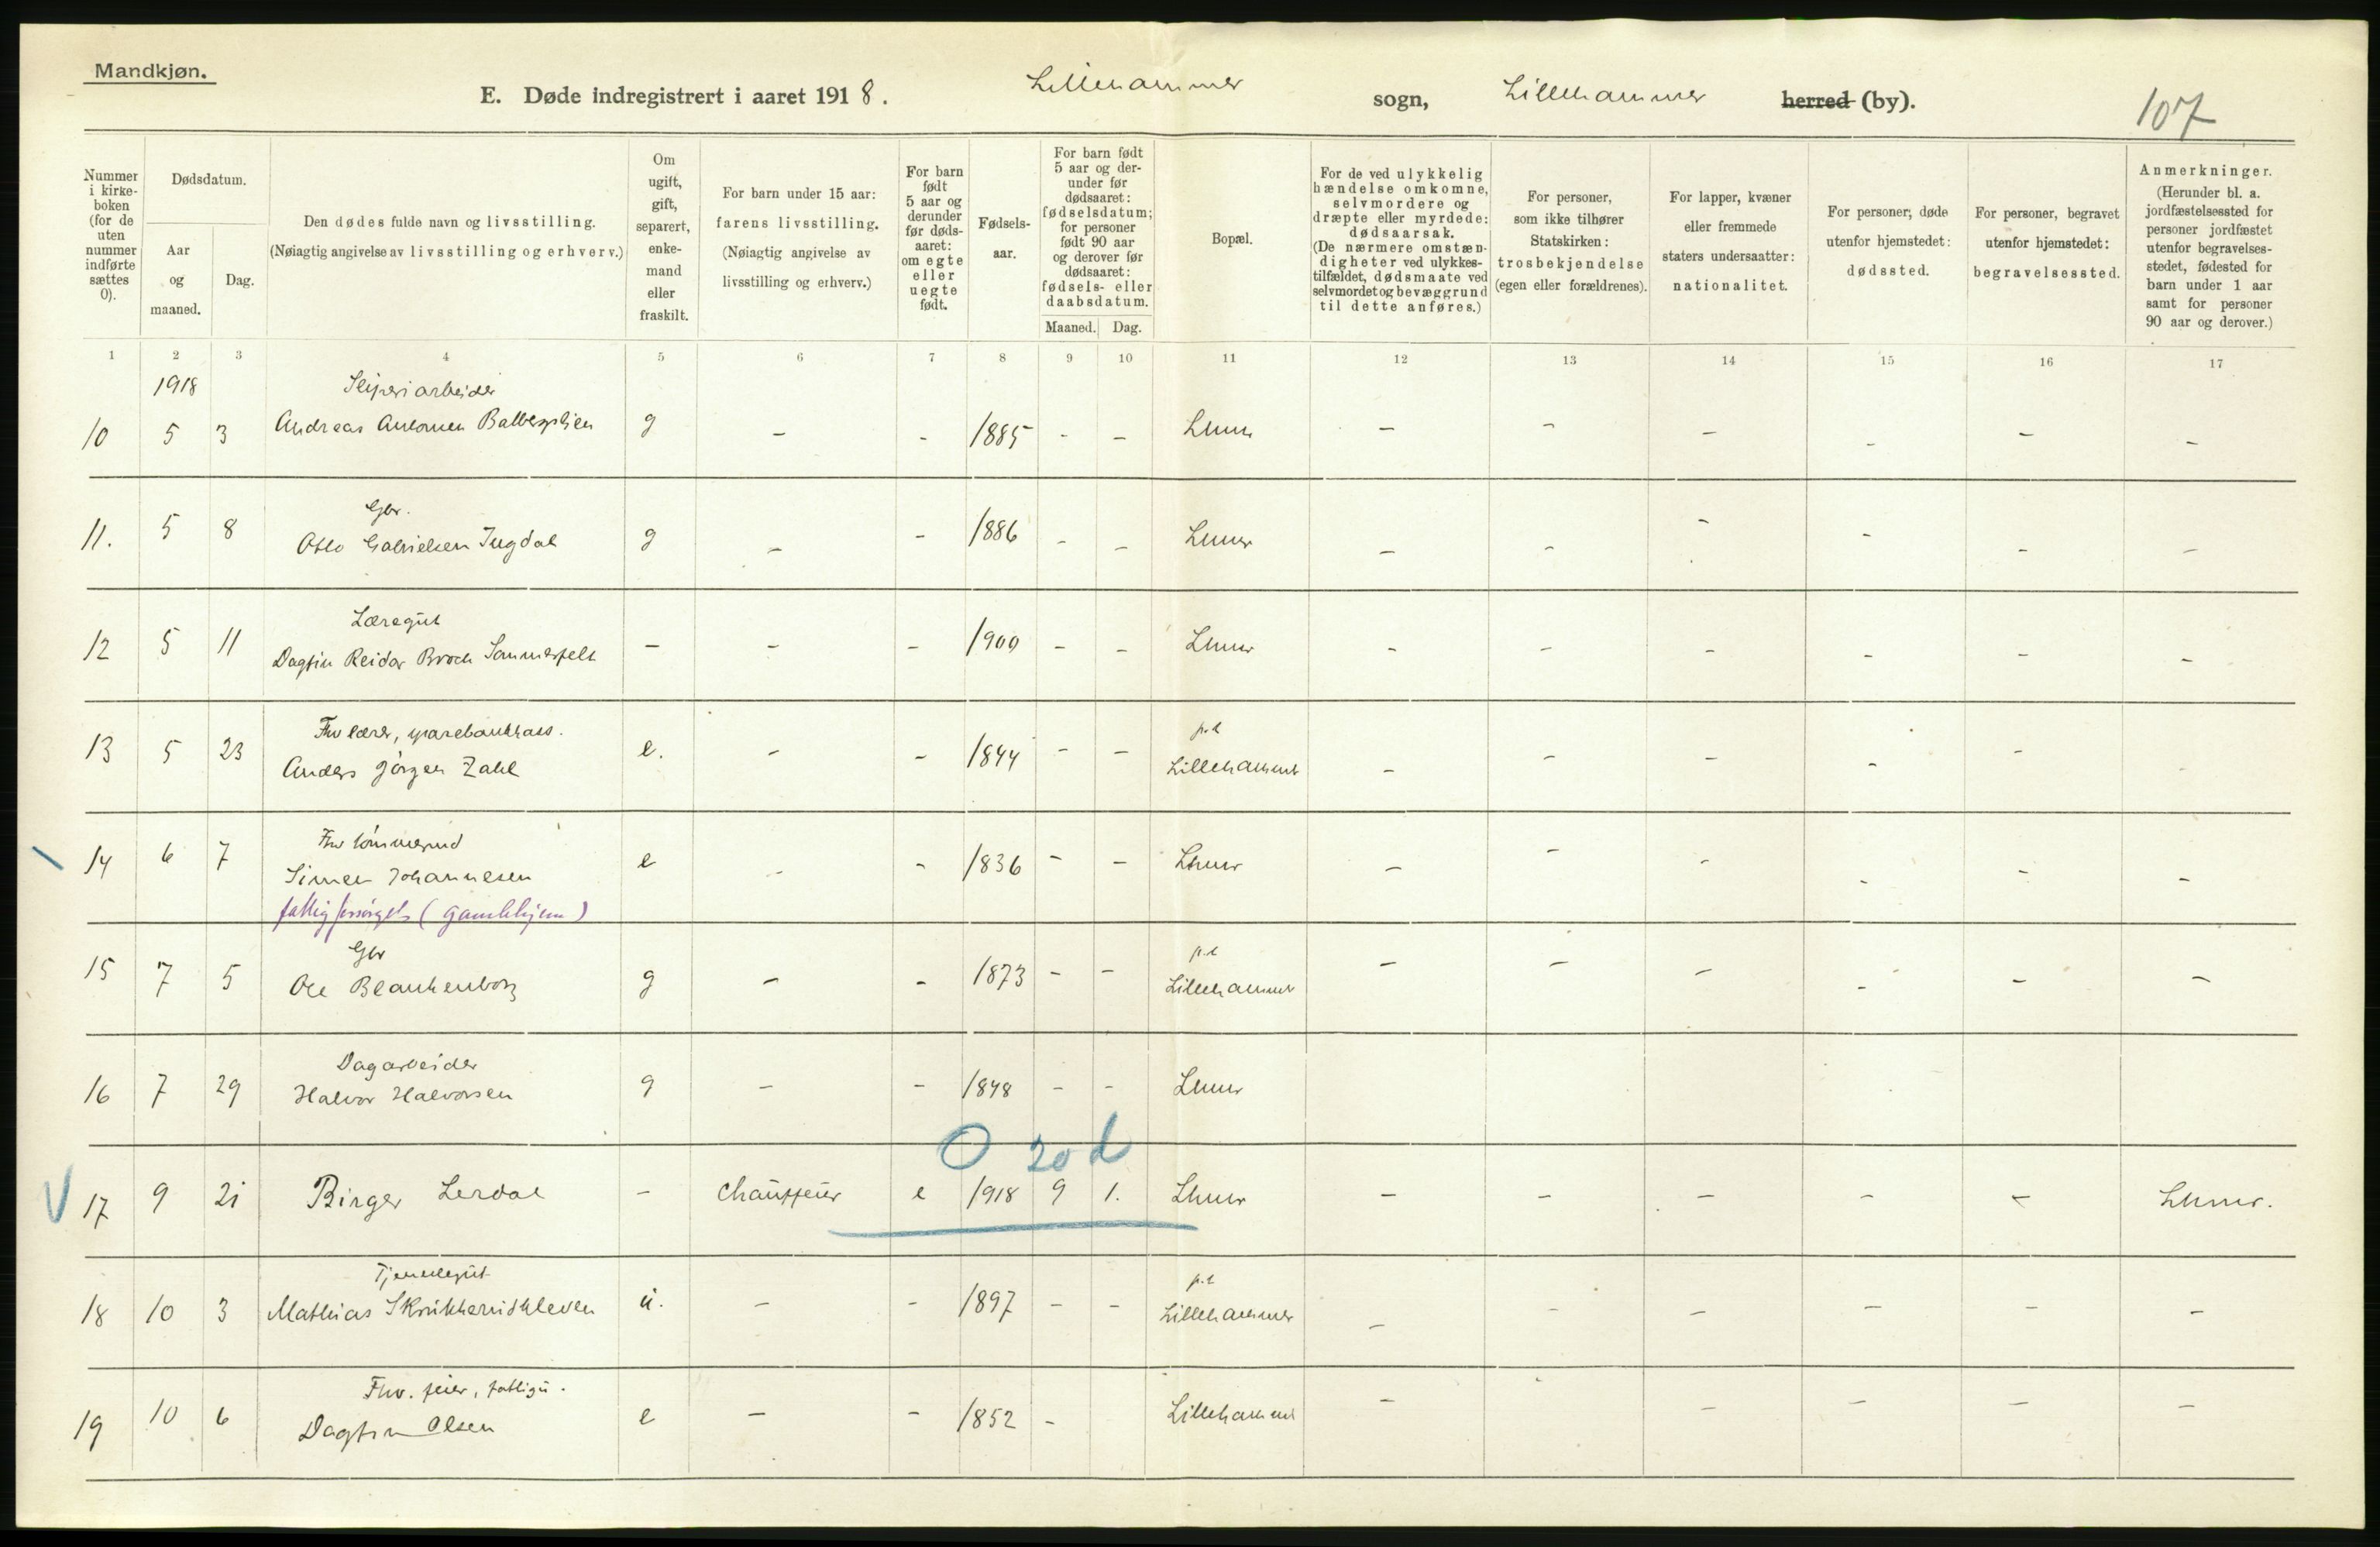 Mandkjøn.
E. Døde indregistrert i aaret 1918. Lillehammer sogn, Lillehammer herred (by).
107
Nummer i kirke-boken (for de uten nummer indførte sættes 0).
Dødsdatum.
Aar og maaned.
Dag.
Den dødes fulde navn og livsstilling.
(Nøiagtig angivelse av livsstilling og erhverv.)
Om ugift, gift, separert, enke-mand eller fraskilt.
For barn under 15 aar: farens livsstilling.
(Nøiagtig angivelse av livsstilling og erhverv.)
For barn født 5 aar og derunder før døds-aaret: om egte eller uegte født.
Fødsels-aar.
For barn født 5 aar og der-under før dødsaaret: fødselsdatum; for personer født 90 aar og derover før dødsaaret: fødsels- eller daabsdatum.
Maaned. Dag.
Bopæl.
For de ved ulykkelig hændelse omkomne, selvmordere og dræpte eller myrdede: dødsaarsak.
(De nærmere omstæn-digheter ved ulykkes-tilfældet, dødsmaate ved selvmordet og bevæggrund til dette anføres.)
For personer, som ikke tilhører Statskirken: trosbekjendelse (egen eller forældrenes).
For lapper, kvæner eller fremmede staters undersaatter: nationalitet.
For personer, døde utenfor hjemstedet: dødssted.
For personer, begravet utenfor hjemstedet: begravelsessted.
Anmerkninger.
(Herunder bl. a. jordfæstelsessted for personer jordfæstet utenfor begravelses-stedet, fødested for barn under 1 aar samt for personer 90 aar og derover.)
1 2 3 4 5 6 7 8 9 10 11 12 13 14 15 16 17
1918 Sliperiarbeider
10 5 3 Andreas Antonsen Balbergslien g - - 1885 - - Lhmr - - - - - -
Gbr.
11. 5 8 Otto Gabrielsen g - - 1886 - - Lhmr - - - - - -
Læregut
12 5 11 Dagfin Reidar Broch Sommerfelt - - - 1900 - - Lhmr - - - - - -
Fhv lærer, sparebankkass. p.t
13 5 23 Anders Jörgen Zahl e. - - 1844 - - Lillehammer - - - - - -
Fhv tömmermd
14 6 7 Simen Johannesen e - - 1836 - - Lhmr - - - - - -
fattigforsörget (gamlehjem)
Gbr p.t
15 7 5 Ole Blankenborg g - - 1873 - - Lillehammer - - - - - -
Dagarbeider
16 7 29 Halvor Halvorsen g - - 1848 - - Lhmr
0 20 d
V 17 9 21 Birger Lerdal - Chauffeur e 1918 9 1. Lhmr - - - - - Lhmr.
Tjenestegut p.t
18 10 3 Mathias Skrukkerudkleven u. - - 1897 - - Lillehammer - - - - - -
Fhv. feier, fattigu.
19 10 6 Dagfin Olsen e - - 1852 - Lillehammer - - - - -